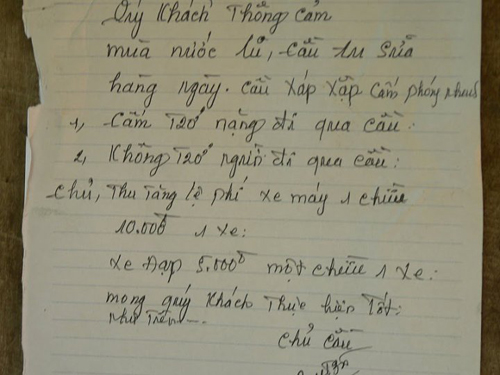 Qúy Khách Thông cảm
mùa nước lũ, cầu tu sửa
hàng ngày. cầu xấp xập cấm phóng nhanh
1, Cấm T20° nặng đi qua cầu:
2, Không T20° người đi qua cầu:
chú, Thu Tăng lệ phí xe máy 1 chiều
10.000đ 1 xe:
xe Đạp 5.000đ một chiều 1 xe:
mong quý Khách Thực hiện Tốt:
như Trên
chủ cầu